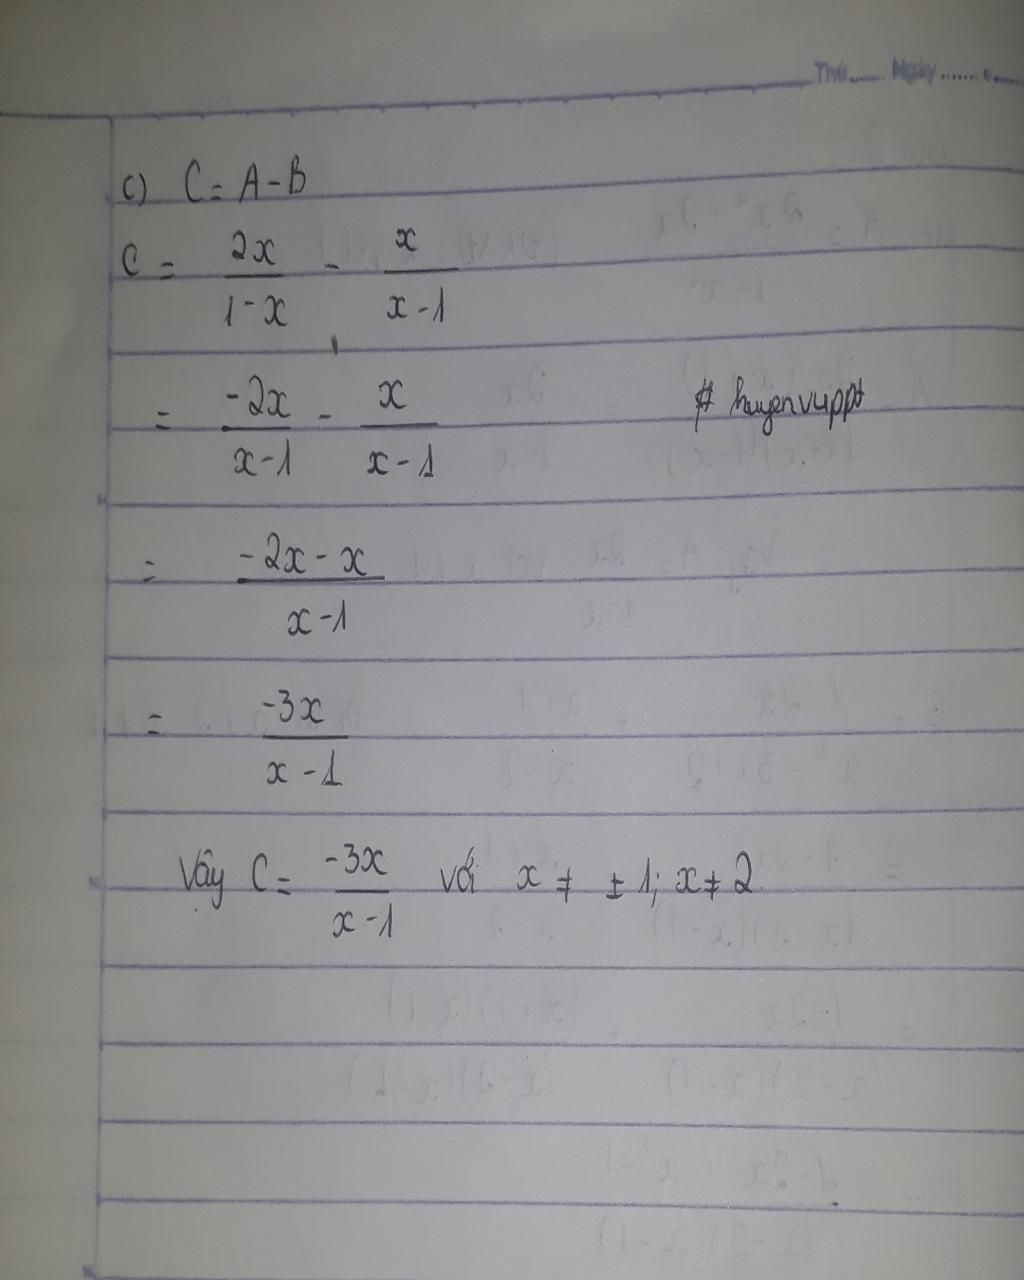 Thứ...... Ngày.......
c) C = A - B
C = 2x/(1-x) - x/(x-1)
= -2x/(x-1) - x/(x-1)
# huyenvuppt
= (-2x - x)/(x-1)
= -3x/(x-1)
Vậy C = -3x/(x-1) với x ≠ ±1; x ≠ 2